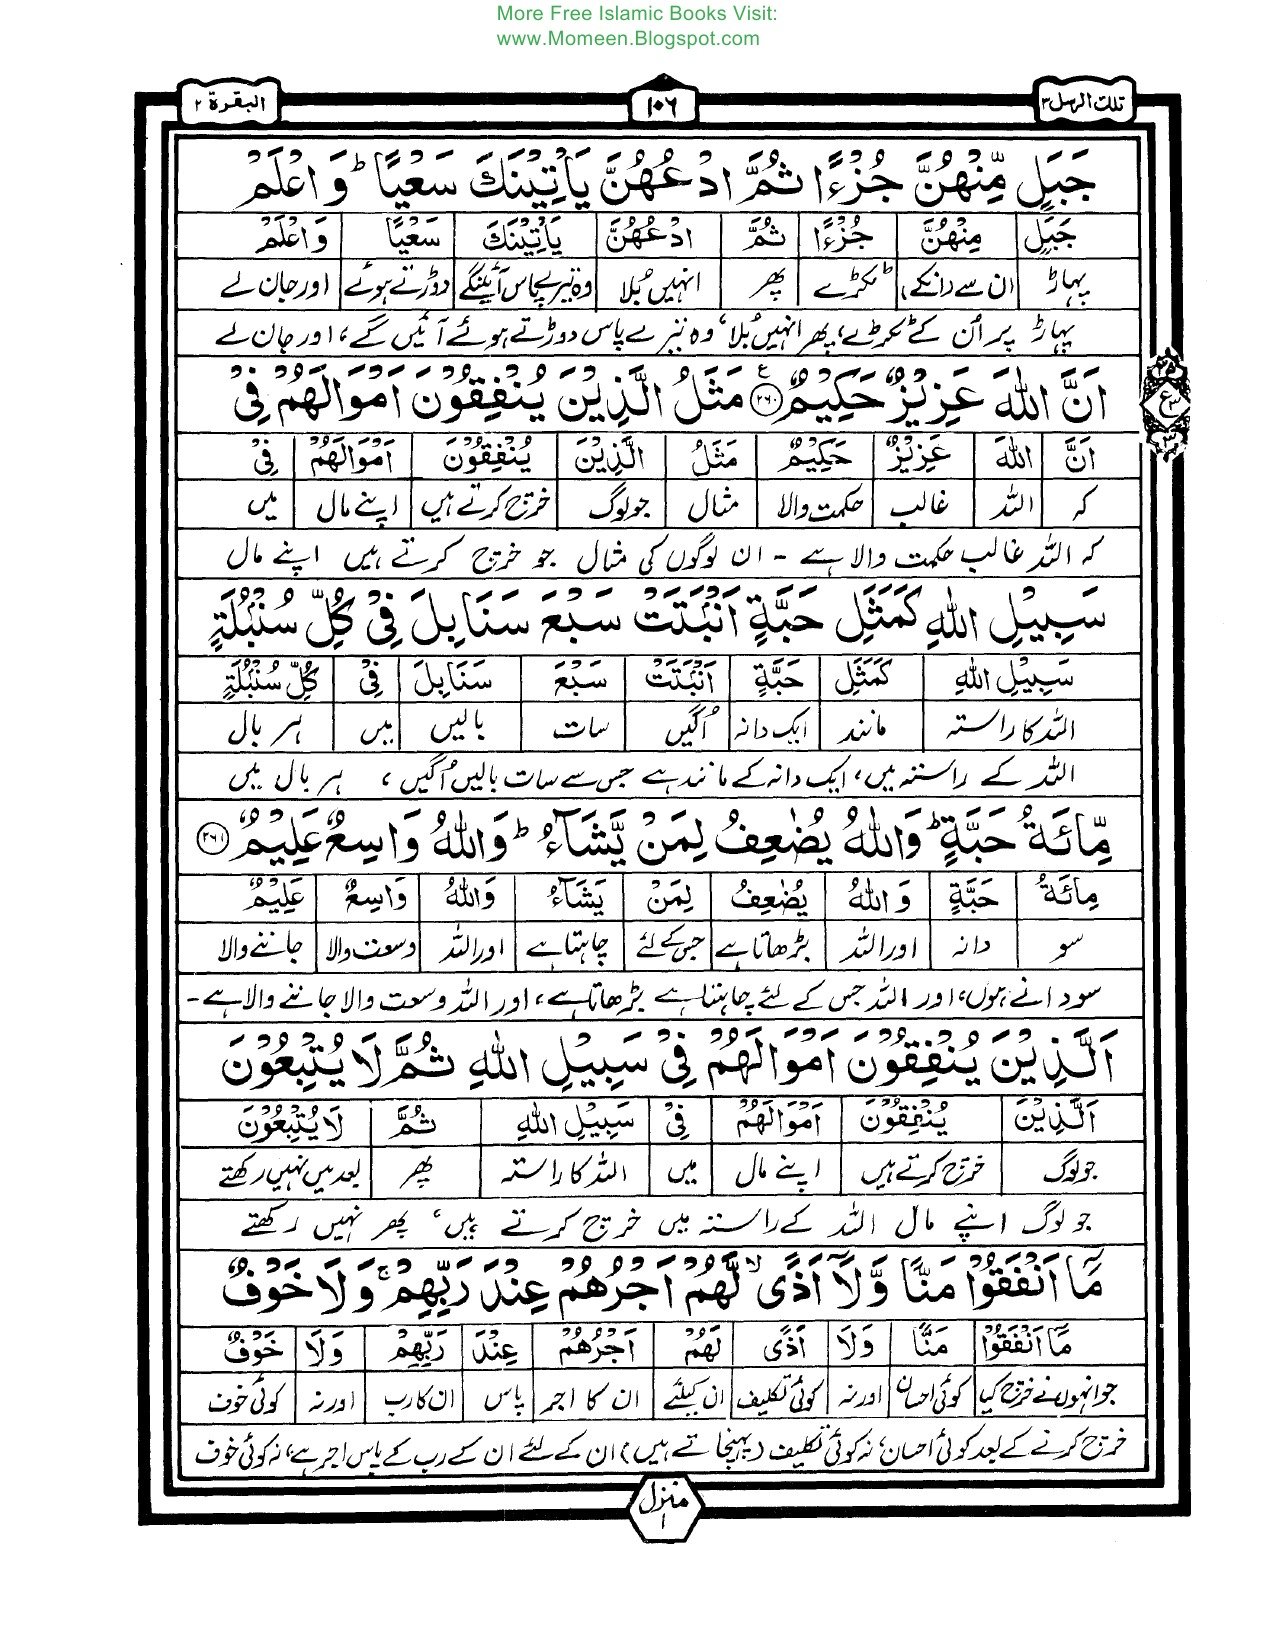 More Free Islamic Books Visit:
www.Momeen.Blogspot.com
تلك الرسل ۳
۱۰۶
البقرة ۲
جَبَلٍ مِّنْهُنَّ جُزْءًا ثُمَّ ادْعُهُنَّ يَأْتِيْنَكَ سَعْيًا ؕ وَاعْلَمْ
جَبَلٍ مِنْهُنَّ جُزْءًا ثُمَّ ادْعُهُنَّ يَأْتِيْنَكَ سَعْيًا وَاعْلَمْ
پہاڑ ان سے (انکے) ٹکڑے پھر انہیں بُلا وہ تیرے پاس آئینگے دوڑتے ہوئے اور جان لے
پہاڑ پر اُن کے ٹکڑے، پھر انہیں بُلا، وہ تیرے پاس دوڑتے ہوئے آئیں گے، اور جان لے
اَنَّ اللّٰهَ عَزِيْزٌ حَكِيْمٌ ۲۶۰ ع مَثَلُ الَّذِيْنَ يُنْفِقُوْنَ اَمْوَالَهُمْ فِيْ
۳۵
ع ۳
۳
اَنَّ اللّٰهَ عَزِيْزٌ حَكِيْمٌ مَثَلُ الَّذِيْنَ يُنْفِقُوْنَ اَمْوَالَهُمْ فِيْ
کہ اللہ غالب حکمت والا مثال جو لوگ خرچ کرتے ہیں اپنے مال میں
کہ اللہ غالب حکمت والا ہے - ان لوگوں کی مثال جو خرچ کرتے ہیں اپنے مال
سَبِيْلِ اللّٰهِ كَمَثَلِ حَبَّةٍ اَنْۢبَتَتْ سَبْعَ سَنَابِلَ فِيْ كُلِّ سُنْۢبُلَةٍ
سَبِيْلِ اللّٰهِ كَمَثَلِ حَبَّةٍ اَنْۢبَتَتْ سَبْعَ سَنَابِلَ فِيْ كُلِّ سُنْۢبُلَةٍ
اللہ کا راستہ مانند ایک دانہ اُگیں سات بالیں میں ہر بال
اللہ کے راستہ میں، ایک دانہ کے مانند ہے جس سے سات بالیں اُگیں، ہر بال میں
مِّائَةُ حَبَّةٍ ؕ وَاللّٰهُ يُضٰعِفُ لِمَنْ يَّشَآءُ ؕ وَاللّٰهُ وَاسِعٌ عَلِيْمٌ ۲۶۱
مِائَةُ حَبَّةٍ وَاللّٰهُ يُضٰعِفُ لِمَنْ يَشَآءُ وَاللّٰهُ وَاسِعٌ عَلِيْمٌ
سو دانہ اور اللہ بڑھاتا ہے جس کے لئے چاہتا ہے اور اللہ وسعت والا جاننے والا
سو دانے ہوں، اور اللہ جس کے لئے چاہتا ہے بڑھاتا ہے، اور اللہ وسعت والا جاننے والا ہے -
اَلَّذِيْنَ يُنْفِقُوْنَ اَمْوَالَهُمْ فِيْ سَبِيْلِ اللّٰهِ ثُمَّ لَا يُتْبِعُوْنَ
اَلَّذِيْنَ يُنْفِقُوْنَ اَمْوَالَهُمْ فِيْ سَبِيْلِ اللّٰهِ ثُمَّ لَا يُتْبِعُوْنَ
جو لوگ خرچ کرتے ہیں اپنے مال میں اللہ کا راستہ پھر بعد میں نہیں رکھتے
جو لوگ اپنے مال اللہ کے راستہ میں خرچ کرتے ہیں، پھر نہیں رکھتے
مَآ اَنْفَقُوْا مَنًّا وَّلَآ اَذًى ۙ لَّهُمْ اَجْرُهُمْ عِنْدَ رَبِّهِمْ ۚ وَلَا خَوْفٌ
مَآ اَنْفَقُوْا مَنًّا وَلَآ اَذًى لَهُمْ اَجْرُهُمْ عِنْدَ رَبِّهِمْ وَلَا خَوْفٌ
جو انہوں نے خرچ کیا کوئی احسان اور نہ کوئی تکلیف ان کیلئے ان کا اجر پاس ان کا رب اور نہ کوئی خوف
خرچ کرنے کے بعد کوئی احسان، نہ کوئی تکلیف (پہنچاتے ہیں) ان کے لئے ان کے رب کے پاس اجر ہے، نہ کوئی خوف
منزل
۱